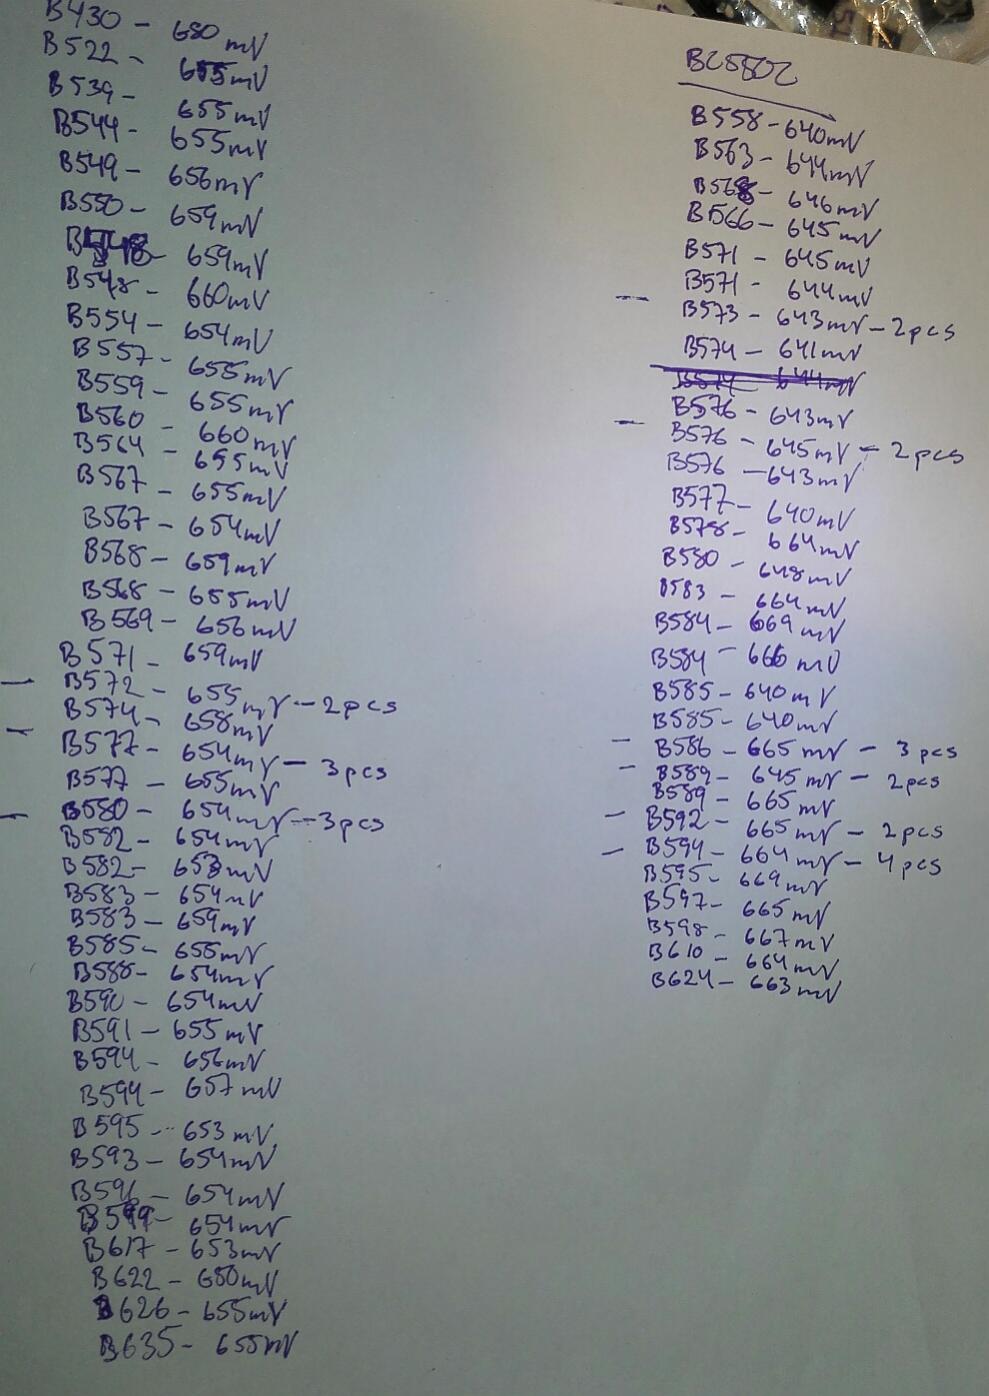 B430 - 680 mV
B522 - 655mV
B539 - 655mV
B544 - 655mV
B549 - 656mV
B550 - 659mV
B548 - 659mV
B548 - 660mV
B554 - 654mV
B557 - 655mV
B559 - 655mV
B560 - 660mV
B564 - 655mV
B567 - 655mV
B567 - 654mV
B568 - 659mV
B568 - 655mV
B569 - 656mV
B571 - 659mV
B572 - 655mV - 2pcs
B574 - 658mV
B577 - 654mV - 3pcs
B577 - 655mV
B580 - 654mV - 3pcs
B582 - 654mV
B582 - 653mV
B583 - 654mV
B583 - 659mV
B585 - 655mV
B588 - 654mV
B590 - 654mV
B591 - 655mV
B594 - 656mV
B594 - 657mV
B595 - 653mV
B593 - 654mV
B596 - 654mV
B599 - 654mV
B617 - 653mV
B622 - 650mV
B626 - 655mV
B635 - 655mV
BC550C
B558 - 640mV
B563 - 644mV
B568 - 646mV
B566 - 645mV
B571 - 645mV
B571 - 644mV
B573 - 643mV - 2pcs
B574 - 641mV
B574 644mV
B576 - 643mV
B576 - 645mV - 2pcs
B576 - 643mV
B577 - 640mV
B578 - 664mV
B580 - 648mV
B583 - 664mV
B584 - 669mV
B584 - 666mV
B585 - 640mV
B585 - 640mV
B586 - 665mV - 3pcs
B589 - 645mV - 2pcs
B589 - 665mV
B592 - 665mV - 2pcs
B594 - 664mV - 4pcs
B595 - 669mV
B597 - 665mV
B598 - 667mV
B610 - 664mV
B624 - 663mV